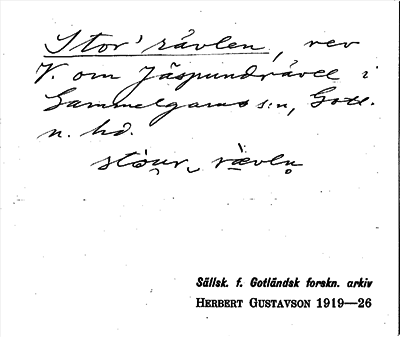 Stor' rävlen, rev
V. om Jäspundrävel i
Gammelgarns s:n, Gotl.
n. hd.
stòur rävln
Sällsk. f. Gotländsk forskn. arkiv
HERBERT GUSTAVSON 1919—26